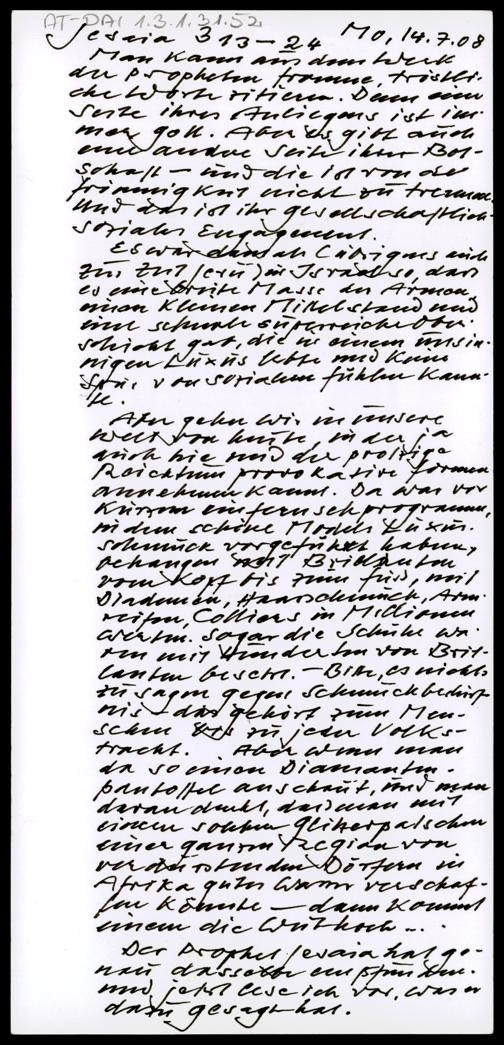 AT-DAI 1.3.1.31.52
Jesaia 3 13-24 Mo, 14.7.08
Man kann aus dem Werk
der Propheten fromme, tröstli-
che Worte zitieren. Denn eine
Seite ihres Anliegens ist im-
mer Gott. Aber es gibt auch
eine andere Seite ihrer Bot-
schaft – und die ist von der
Frömmigkeit nicht zu trennen.
Und das ist ihr gesellschaftlich-
soziales Engagement.
Es war damals (übrigens auch
zur Zeit Jesu) in Israel so, dass
es eine breite Masse der Armen,
einen kleinen Mittelstand und
eine schmale superreiche Ober-
schicht gab, die in einem unsin-
nigen Luxus lebte und keine
Spur von sozialem fühlen kann-
te.
Aber gehen wir in unsere
Welt von heute, in der ja
auch hie und da protzige
Reichtum provokative Formen
annehmen kann. Da war vor
kurzem ein fernsehprogramm,
in dem schöne Models Luxus-
schmuck vorgeführt haben,
behangen mit Brillanten
vom Kopf bis zum fuss, mit
Diademen, Haarschmuck, Arm-
reifen, Colliers in Millionen
werten. Sogar die Schuhe wa-
ren mit Hunderten von Bril-
lanten besetzt. – Bitte, es nichts
zu sagen gegen Schmuckbedürf-
nis – das gehört zum Men-
schen bis zu jeder Volks-
tracht. Aber wenn man
da so einen Diamanten-
pantoffel anschaut, und man
daran denkt, dass man mit
einem solchen Glitzerpatschen
einer ganzen Region von
verdurstenden Dörfern in
Afrika gutes Wasser verschaf-
fen könnte – dann kommt
einem die Wut hoch...
Der Prophet Jesaia hat ge-
nau dasselbe empfunden.
und jetzt lese ich vor, was er
dazu gesagt hat.